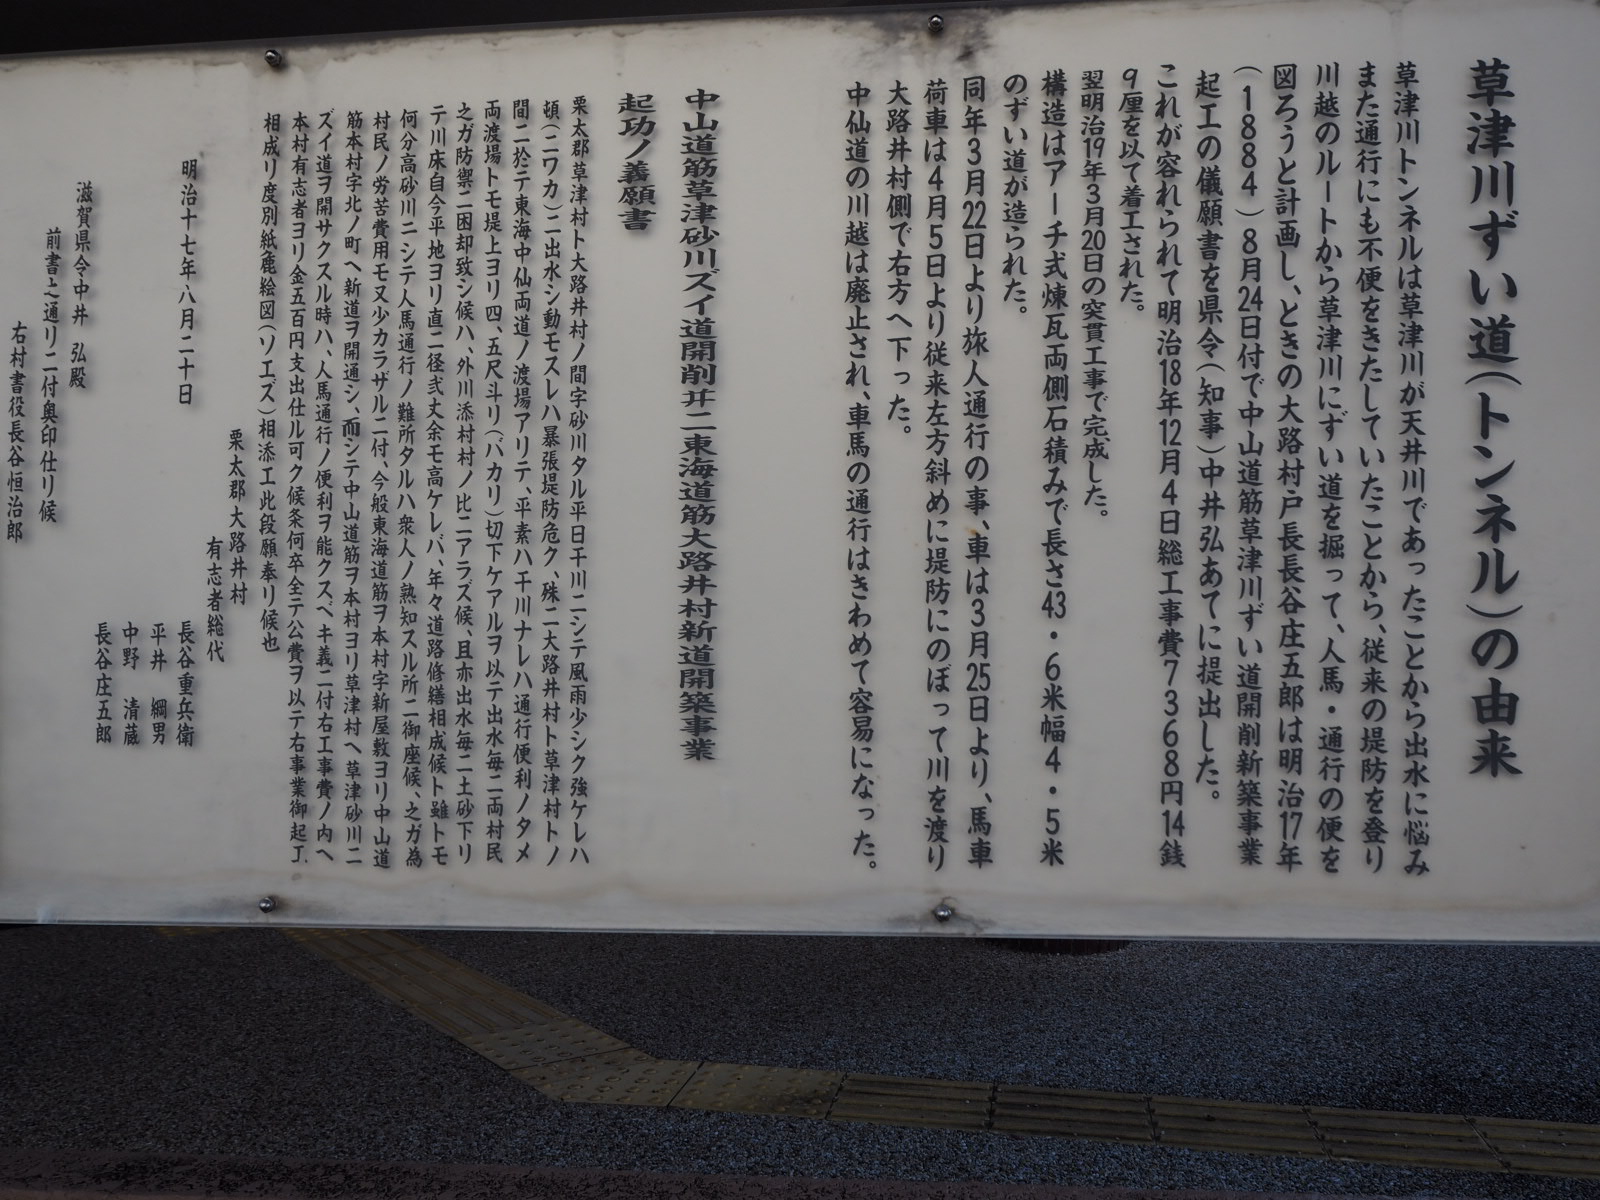 草津川ずい道(トンネル)の由来
草津川トンネルは草津川が天井川であったことから出水に悩み
また通行にも不便をきたしていたことから、従来の堤防を登り
川越のルートから草津川にずい道を掘って、人馬・通行の便を
図ろうと計画し、ときの大路村戸長長谷庄五郎は明治17年
(1884)8月24日付で中山道筋草津川ずい道開削新築事業
起工の儀願書を県令(知事)中井弘あてに提出した。
これが容れられて明治18年12月4日総工事費7368円14銭
9厘を以て着工された。
翌明治19年3月20日の突貫工事で完成した。
構造はアーチ式煉瓦両側石積みで長さ43・6米幅4・5米
のずい道が造られた。
同年3月22日より旅人通行の事、車は3月25日より、馬車
荷車は4月5日より従来左方斜めに堤防にのぼって川を渡り
大路井村側で右方へ下った。
中仙道の川越は廃止され、車馬の通行はきわめて容易になった。
中山道筋草津砂川ズイ道開削幷二東海道筋大路井村新道開築事業
起功ノ義願書
栗太郡草津村ト大路井村ノ間字砂川タル平日干川ニシテ風雨少シク強ケレハ
頓(ニワカ)ニ出水シ動モスレハ暴張堤防危ク、殊ニ大路井村ト草津村トノ
間ニ於テ東海中仙両道ノ渡場アリテ、平素ハ干川ナレハ通行便利ノタメ
両渡場トモ堤上ヨリ四、五尺斗リ(バカリ)切下ケアルヲ以テ出水毎ニ両村民
之ガ防禦ニ困却致シ候ハ、外川添村村ノ比ニアラズ候、且亦出水毎ニ土砂下リ
テ川床自今平地ヨリ直ニ径弐丈余モ高ケレバ、年々道路修繕相成候ト雖トモ
何分高砂川ニシテ人馬通行ノ難所タルハ衆人ノ熟知スル所ニ御座候、之ガ為
村民ノ労苦費用モ又少カラザルニ付、今般東海道筋ヲ本村字新屋敷ヨリ中山道
筋本村字北ノ町ヘ新道ヲ開通シ、而シテ中山道筋ヲ本村ヨリ草津村ヘ草津砂川ニ
ズイ道ヲ開サクスル時ハ、人馬通行ノ便利ヲ能クスベキ義ニ付右工事費ノ内ヘ
本村有志者ヨリ金五百円支出仕ル可ク候条何卒全テ公費ヲ以テ右事業御起工
相成リ度別紙麁絵図(ソエズ)相添エ此段願奉リ候也
栗太郡大路井村
有志者総代
明治十七年八月二十日
長谷重兵衛
平井 綱男
中野 清蔵
長谷庄五郎
滋賀県令中井 弘殿
前書之通リニ付奥印仕リ候
右村書役長谷恒治郎